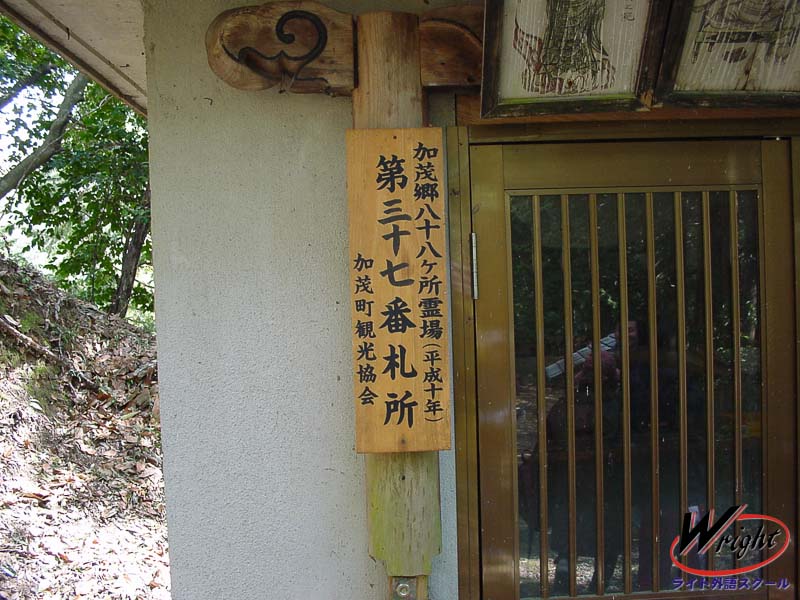 加茂郷八十八ヶ所霊場(平成十年)
第三十七番札所
加茂町観光協会
Wright
ライト外語スクール